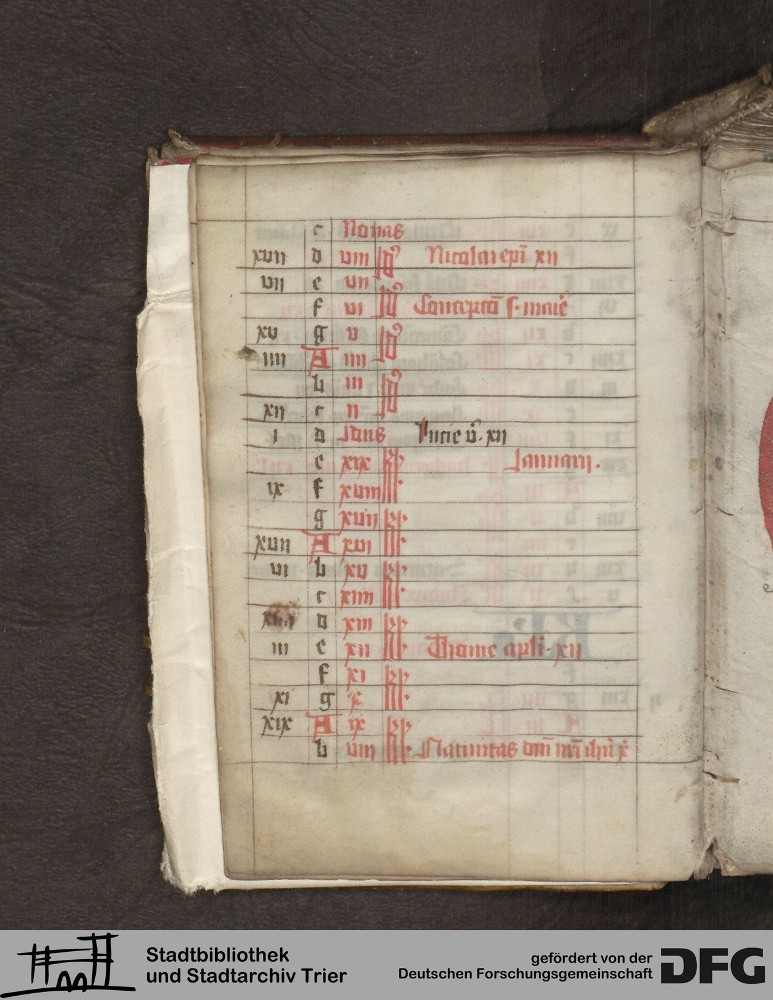 c Nonas
xvii d viii Id' Nicolai epī xii
vii e vii
f vi Id' Conceptō s. marie
xv g v Id'
iiii A iiii
b iii Id'
xii c ii
i d Idus Lucie v̄. xii
e xix kl' Januarii.
ix f xviii
g xvii kl'
xvii A xvi
vi b xv kl'
c xiiii
d xiii kl'
iii e xii Thome apli. xii
f xi kl'
xi g x
xix A ix kl'
b viii Natiuitas dn̄i nr̄i
Stadtbibliothek
und Stadtarchiv Trier
gefördert von der
Deutschen Forschungsgemeinschaft
DFG